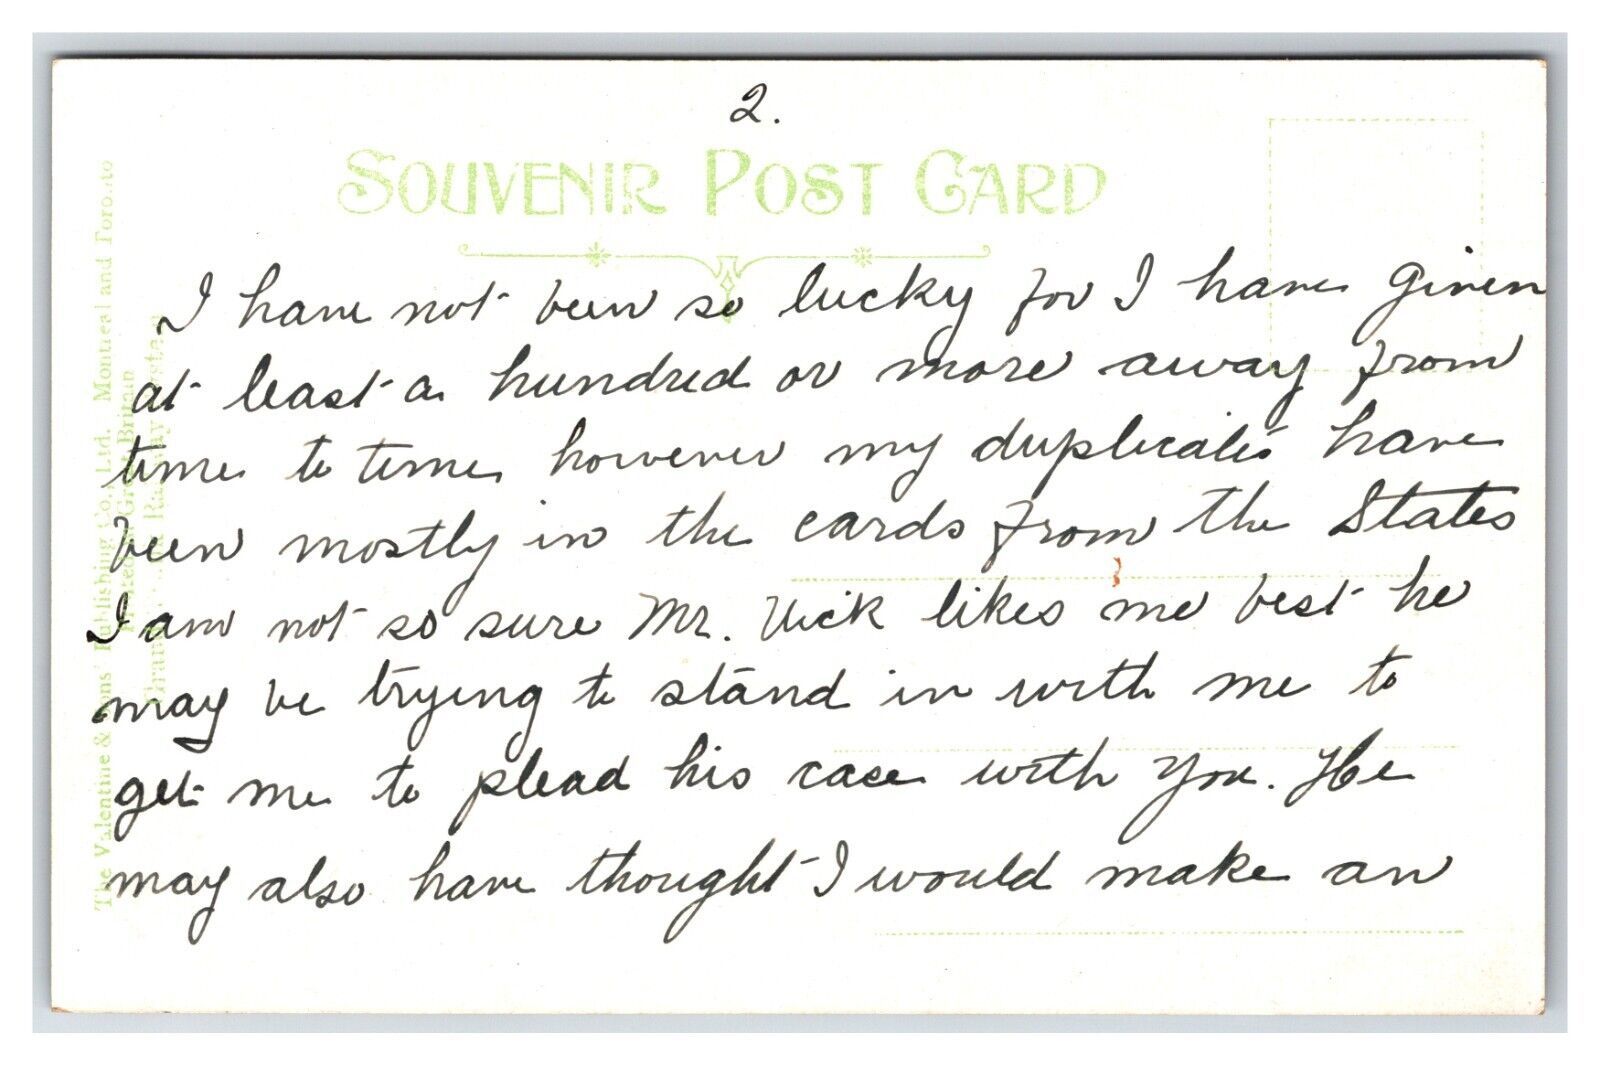 2.
SOUVENIR POST CARD
I have not been so lucky for I have given
at least a hundred or more away from
time to time however my duplicates have
been mostly in the cards from the States
I am not so sure Mr. Vick likes me best he
may be trying to stand in with me to
get me to plead his case with you. He
may also have thought I would make an
The Valentine & Sons' Publishing Co., Ltd. Montreal and Toronto
Printed in Great Britain
Railway System